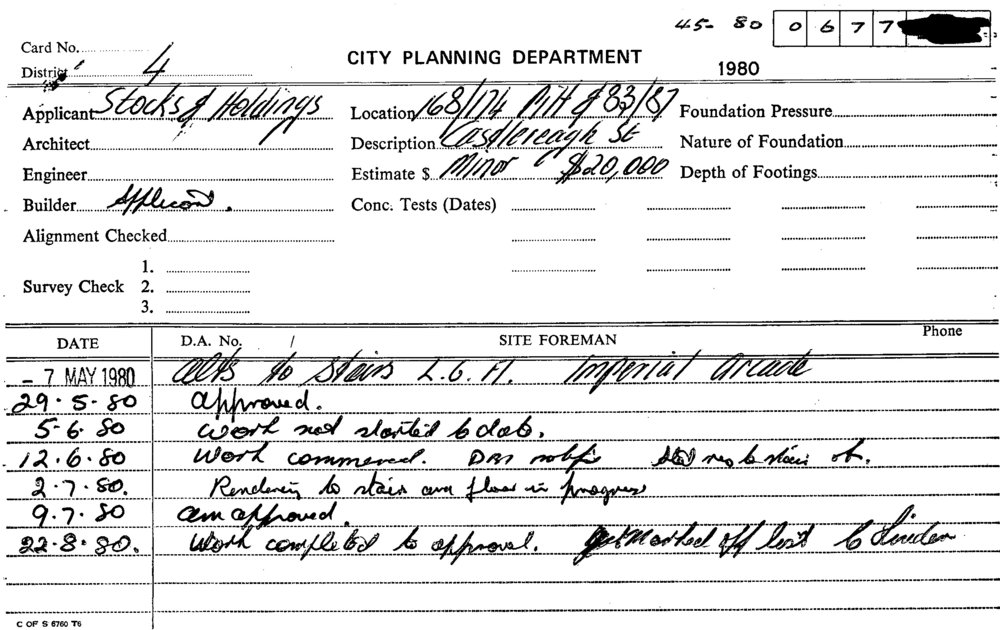 45- 80 0 6 7 7
Card No.
District 4
CITY PLANNING DEPARTMENT
1980
Applicant Stocks & Holdings
Location 168/174 Pitt & 83/87
Foundation Pressure
Architect
Description Castlereagh St
Nature of Foundation
Engineer
Estimate $ Minor $20,000
Depth of Footings
Builder Applicant.
Conc. Tests (Dates)
Alignment Checked
1.
Survey Check 2.
3.
DATE D.A. No. SITE FOREMAN Phone
- 7 MAY 1980 Alts to Stairs L.G. Fl. Imperial Arcade
29.5.80 Approved.
5-6.80 Work not started to date.
12.6.80 Work commenced. to stair
2.7.80. Rendering to stair and floor in progress
9.7.80 am approved.
22.8.80. Work completed to approval. Marked off list
C OF S 6760 T6